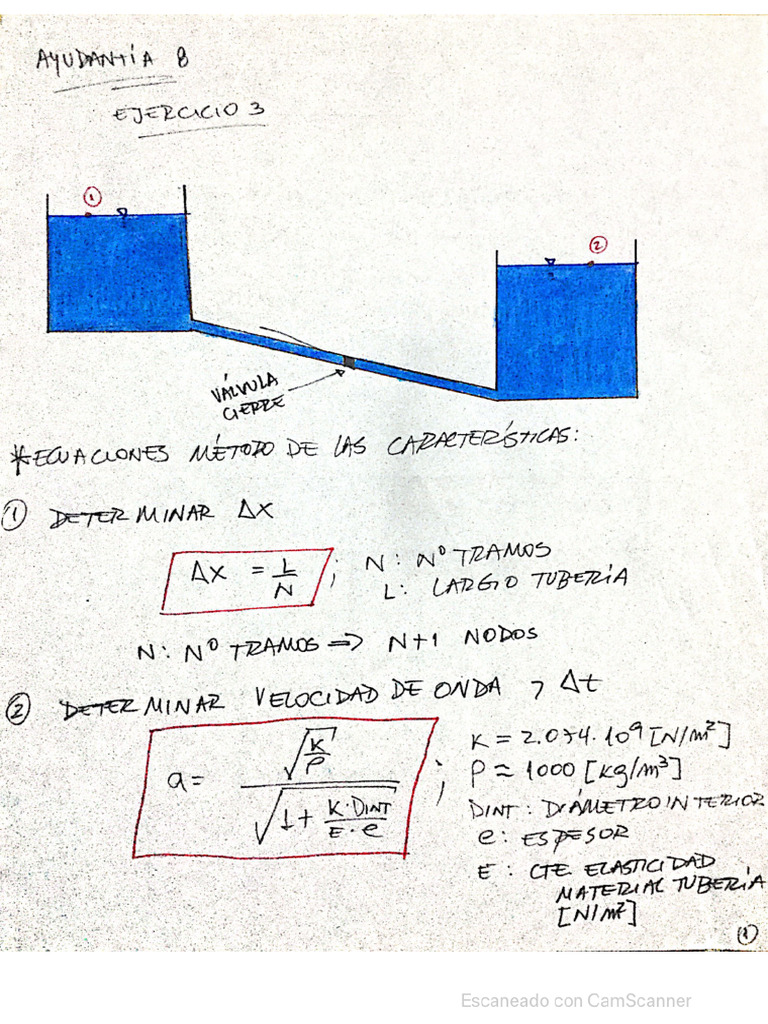 AYUDANTÍA 8
EJERCICIO 3
①
②
VÁLVULA
CIERRE
*ECUACIONES MÉTODO DE LAS CARACTERÍSTICAS:
① DETERMINAR Δx
Δx = L/N ; N: Nº TRAMOS
L: LARGO TUBERÍA
N: Nº TRAMOS => N+1 NODOS
② DETERMINAR VELOCIDAD DE ONDA y Δt
a = √(K/ρ) / √(1 + K·DINT/E·e) ; K = 2.074·10⁹ [N/m²]
ρ ≈ 1000 [kg/m³]
DINT: DIÁMETRO INTERIOR
e: ESPESOR
E: CTE. ELASTICIDAD
MATERIAL TUBERÍA
[N/m²]
①
Escaneado con CamScanner